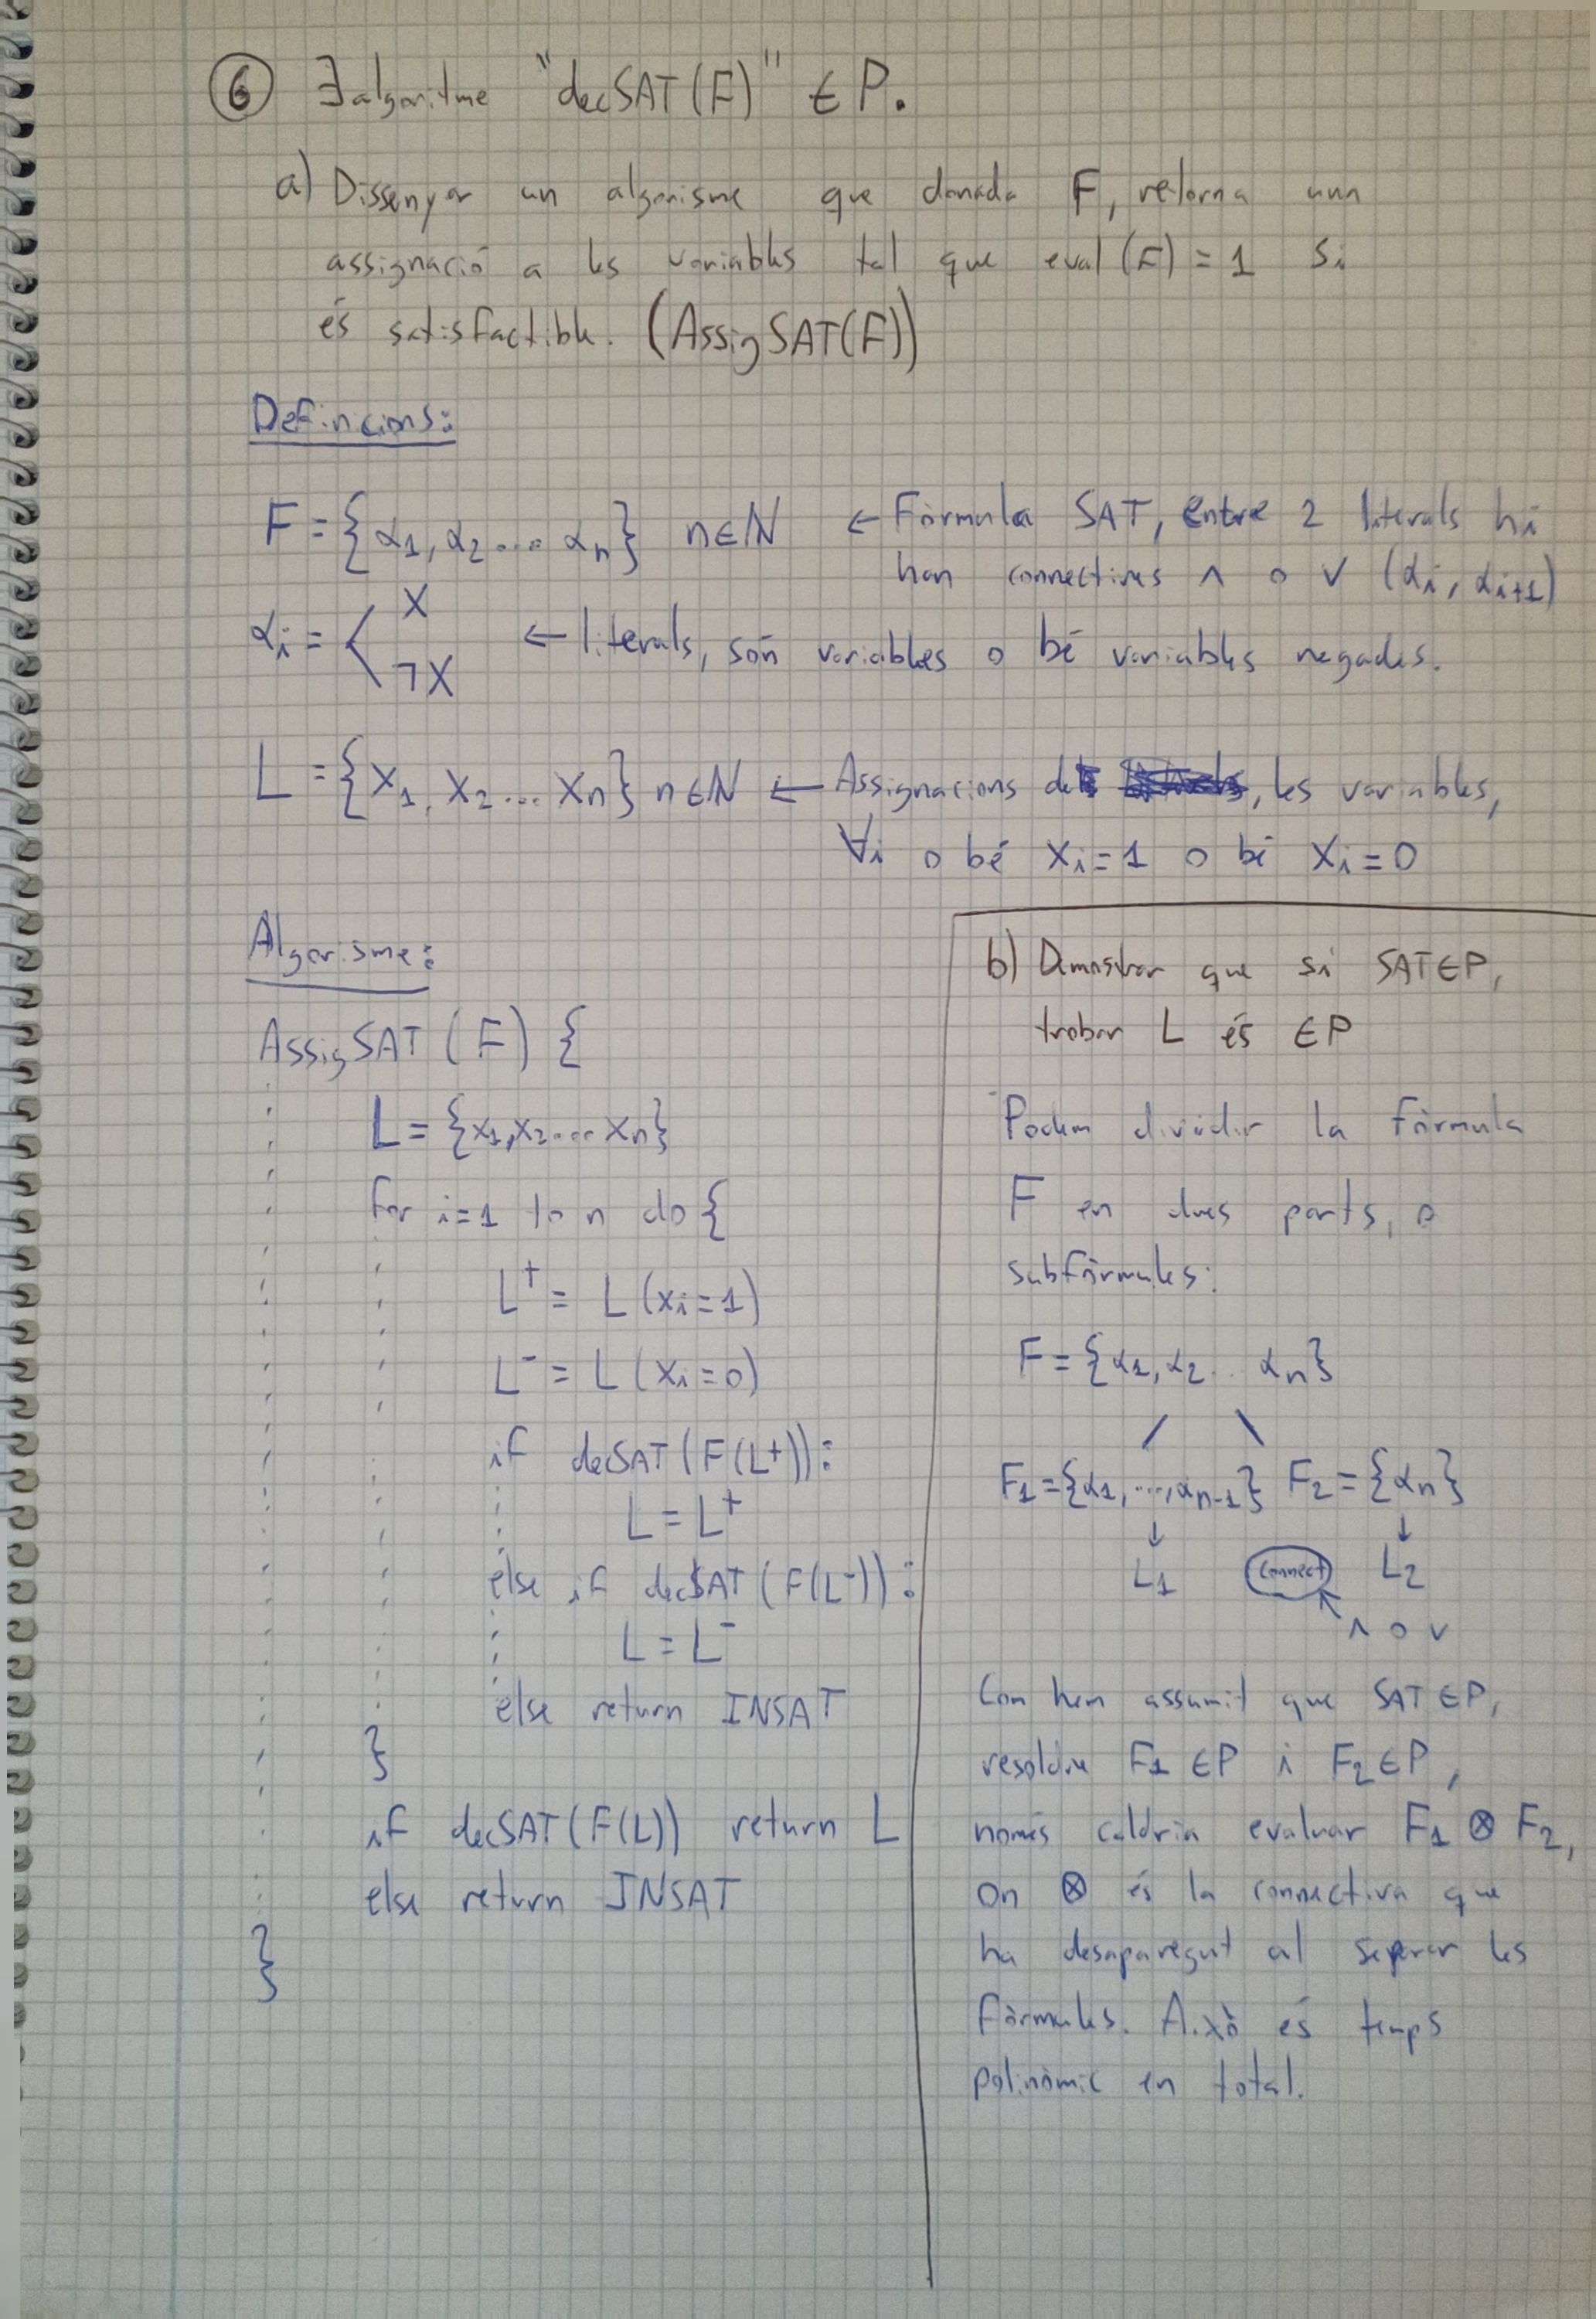 6 ∃ algoritme "decSAT(F)" ∈ P.
a) Dissenyar un algorisme que donada F, retorna una
assignació a les variables tal que eval(F) = 1 si
és satisfactible. (AssigSAT(F))
Definicions:
F = {α1, α2 ... αn} n∈ℕ ← Fórmula SAT, entre 2 literals hi
han connectives ∧ o ∨ (αi, αi+1)
αi = < X
¬X
← literals, són variables o bé variables negades.
L = {x1, x2 ... xn} n∈ℕ ← Assignacions de les variables,
∀i o bé xi = 1 o bé xi = 0
Algorisme:
AssigSAT(F) {
L = {x1, x2 ... xn}
for i=1 to n do {
L+ = L(xi=1)
L- = L(xi=0)
if decSAT(F(L+)):
L = L+
else if decSAT(F(L-)):
L = L-
else return INSAT
}
if decSAT(F(L)) return L
else return INSAT
}
b) Demostrar que si SAT∈P,
trobar L és ∈P
Podem dividir la fórmula
F en dues parts, o
subfórmules:
F = {α1, α2 .. αn}
F1 = {α1, ..., αn-1} F2 = {αn}
↓ ↓
L1 connect L2
∧ o ∨
Com hem assumit que SAT∈P,
resoldre F1 ∈P i F2∈P,
només caldria evaluar F1 ⊗ F2,
on ⊗ és la connectiva que
ha desaparegut al separar les
fórmules. Això és temps
polinòmic en total.